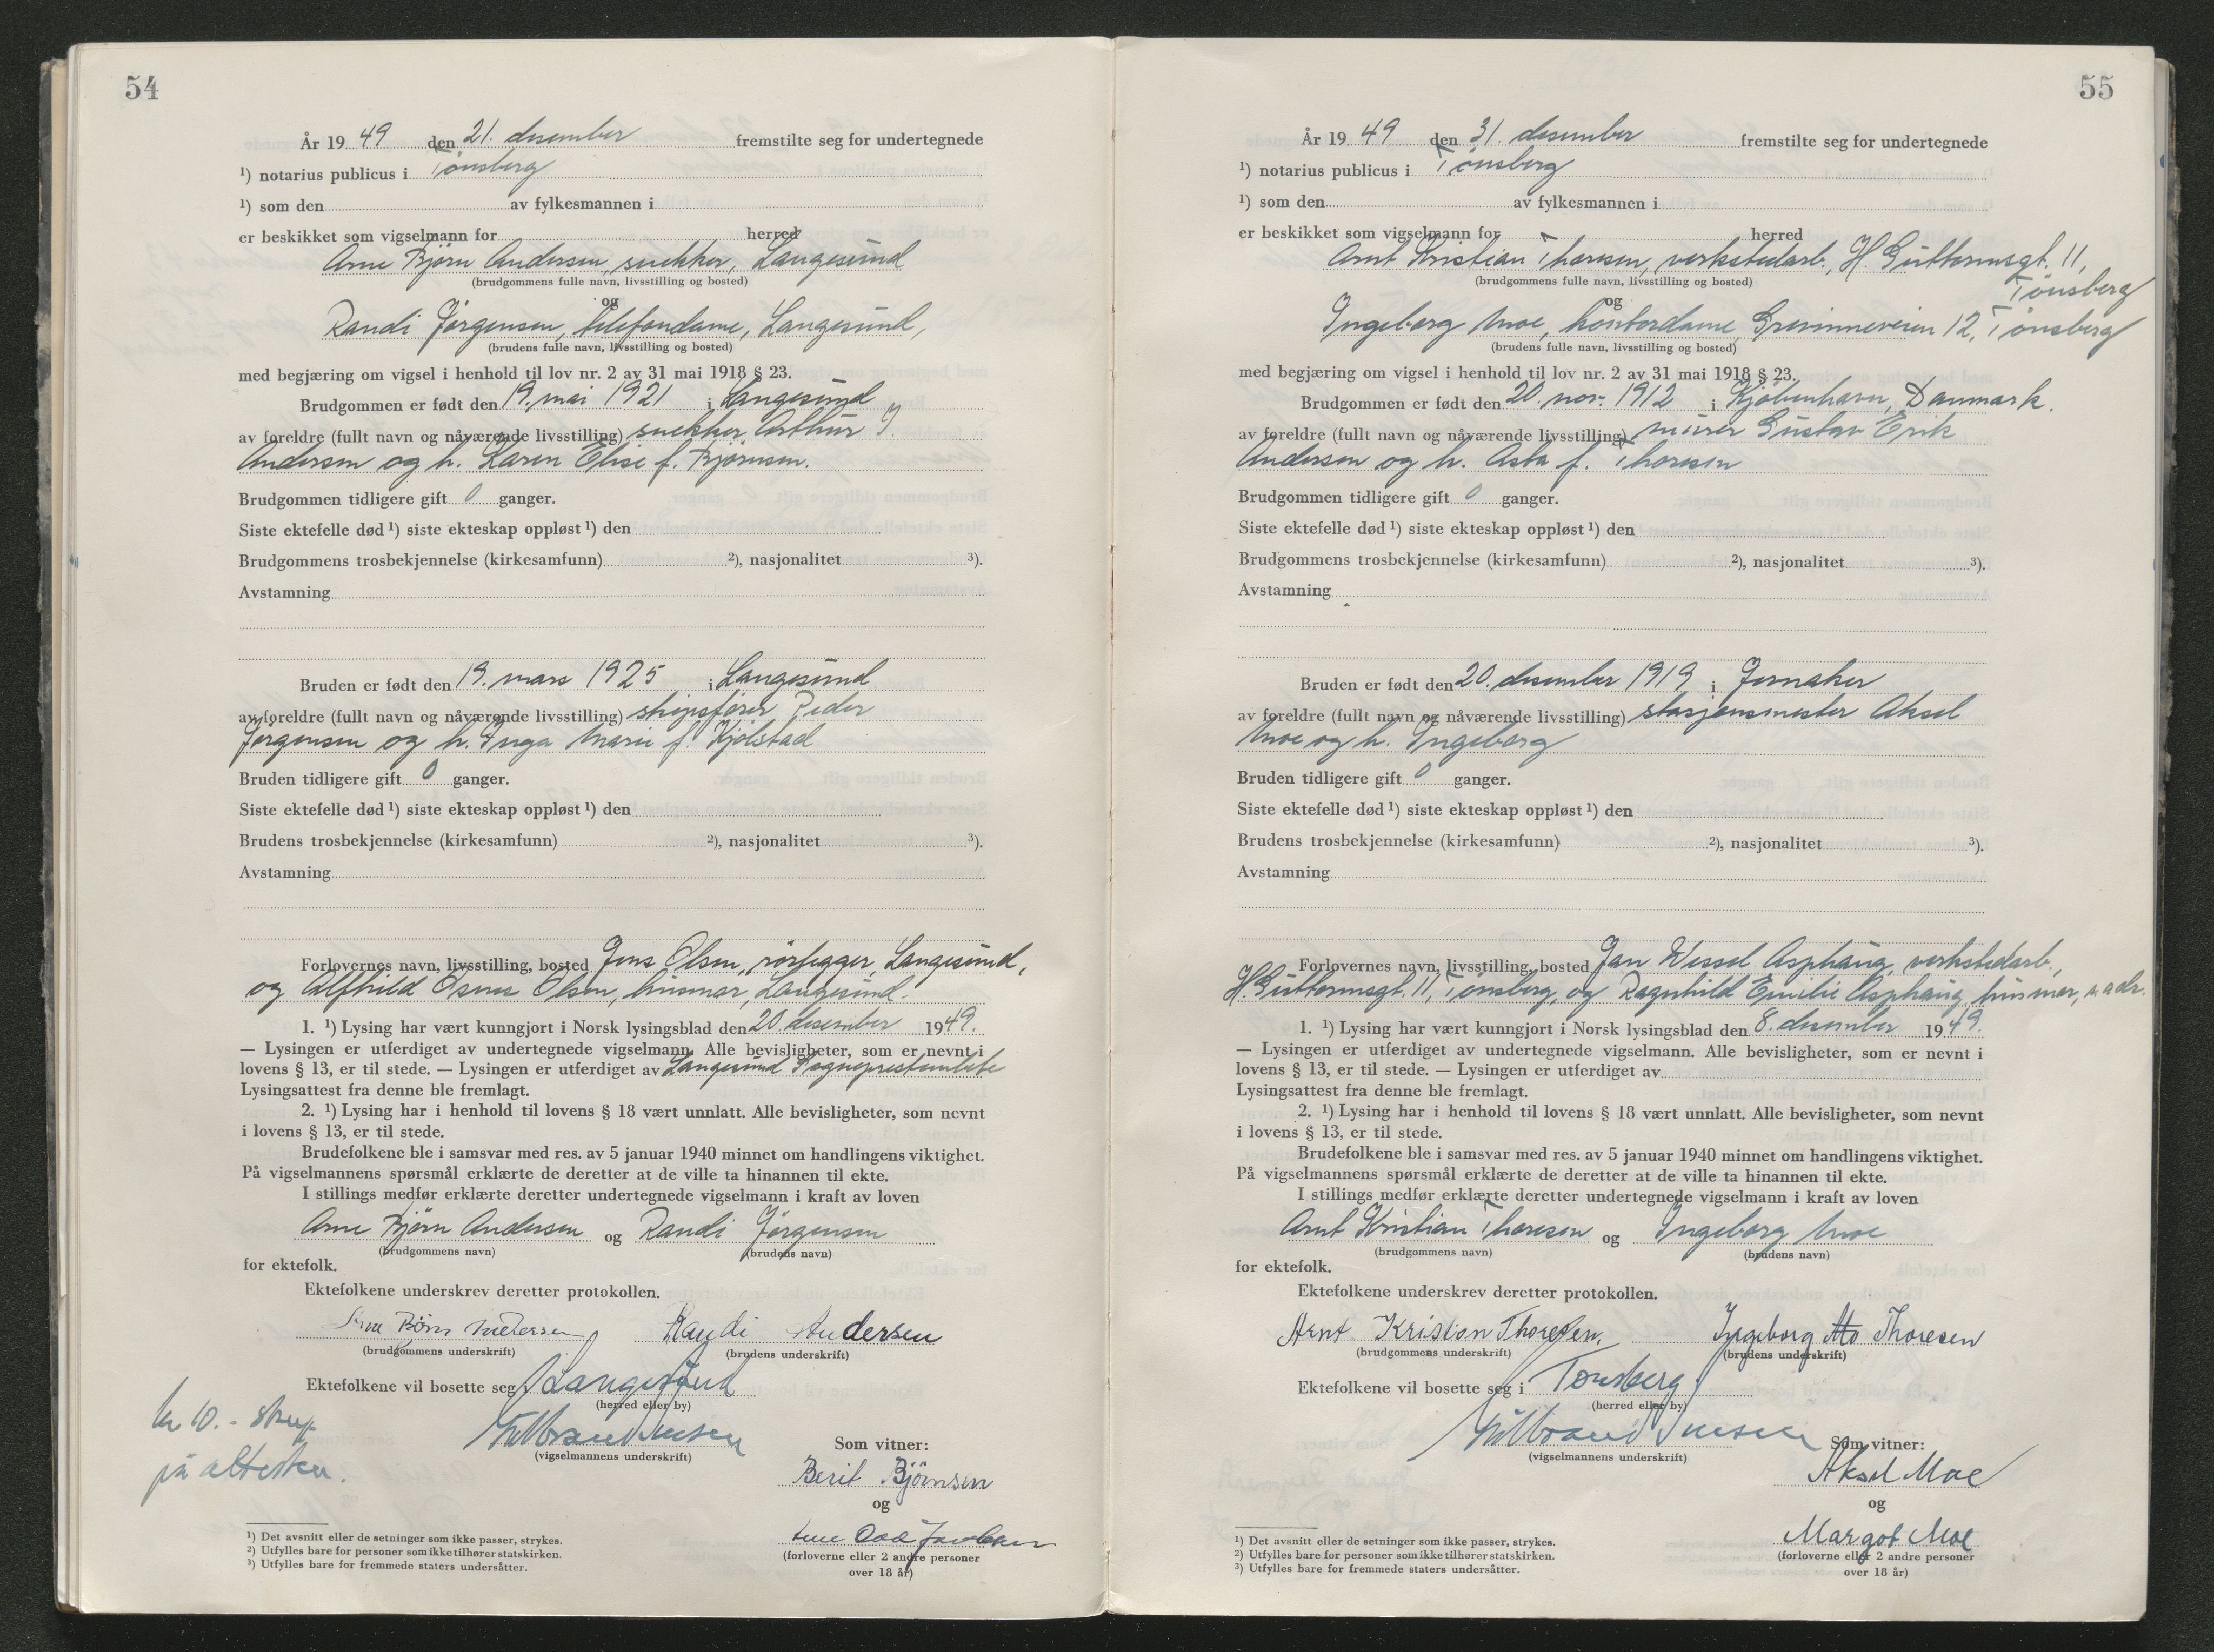 54
År 19 49 den 21. desember fremstilte seg for undertegnede
¹) notarius publicus i Tønsberg
¹) som den av fylkesmannen i
er beskikket som vigselmann for herred
Arne Bjørn Andersen, snekker, Langesund
(brudgommens fulle navn, livsstilling og bosted)
og
Randi Jørgensen, telefondame, Langesund,
(brudens fulle navn, livsstilling og bosted)
med begjæring om vigsel i henhold til lov nr. 2 av 31 mai 1918 § 23.
Brudgommen er født den 19. mai 1921 i Langesund
av foreldre (fullt navn og nåværende livsstilling) snekker Arthur J.
Andersen og h. Karen Elise f. Bjørnsen.
Brudgommen tidligere gift 0 ganger.
Siste ektefelle død ¹) siste ekteskap oppløst ¹) den
Brudgommens trosbekjennelse (kirkesamfunn) ²), nasjonalitet ³).
Avstamning
Bruden er født den 19. mars 1925 i Langesund
av foreldre (fullt navn og nåværende livsstilling) skipsfører Peder
Jørgensen og h. Inga Marie f. Kjølstad
Bruden tidligere gift 0 ganger.
Siste ektefelle død ¹) siste ekteskap oppløst ¹) den
Brudens trosbekjennelse (kirkesamfunn) ²), nasjonalitet ³).
Avstamning
Forlovernes navn, livsstilling, bosted Jens Olsen, rørlegger, Langesund,
og Alfhild Olsen, husmor, Langesund.
1. ¹) Lysing har vært kunngjort i Norsk lysingsblad den 20. desember 1949.
— Lysingen er utferdiget av undertegnede vigselmann. Alle bevisligheter, som er nevnt i
lovens § 13, er til stede. — Lysingen er utferdiget av Langesund Sogneprestembete
Lysingsattest fra denne ble fremlagt.
2. ¹) Lysing har i henhold til lovens § 18 vært unnlatt. Alle bevisligheter, som nevnt
i lovens § 13, er til stede.
Brudefolkene ble i samsvar med res. av 5 januar 1940 minnet om handlingens viktighet.
På vigselmannens spørsmål erklærte de deretter at de ville ta hinannen til ekte.
I stillings medfør erklærte deretter undertegnede vigselmann i kraft av loven
Arne Bjørn Andersen og Randi Jørgensen
(brudgommens navn) (brudens navn)
for ektefolk.
Ektefolkene underskrev deretter protokollen.
Arne Bjørn Andersen Randi Andersen
(brudgommens underskrift) (brudens underskrift)
Ektefolkene vil bosette seg i Langesund
(herred eller by)
(vigselmannens underskrift)
kr 10.- stemp.
på attesten.
Som vitner:
Berit Bjørnsen
og
Odd Jacobsen
(forloverne eller 2 andre personer
over 18 år)
¹) Det avsnitt eller de setninger som ikke passer, strykes.
²) Utfylles bare for personer som ikke tilhører statskirken.
³) Utfylles bare for fremmede staters undersåtter.
55
År 19 49 den 31. desember fremstilte seg for undertegnede
¹) notarius publicus i Tønsberg
¹) som den av fylkesmannen i
er beskikket som vigselmann for herred
Arnt Kristian Thoresen, verkstedarb., H. Guttormsgt. 11,
Tønsberg
(brudgommens fulle navn, livsstilling og bosted)
og
Ingeborg Moe, kontordame, Grevinneveien 12, Tønsberg
(brudens fulle navn, livsstilling og bosted)
med begjæring om vigsel i henhold til lov nr. 2 av 31 mai 1918 § 23.
Brudgommen er født den 20. nov. 1912 i Kjøbenhavn, Danmark.
av foreldre (fullt navn og nåværende livsstilling) murer Gustav Erik
Andersen og h. Asta f. Thoresen
Brudgommen tidligere gift 0 ganger.
Siste ektefelle død ¹) siste ekteskap oppløst ¹) den
Brudgommens trosbekjennelse (kirkesamfunn) ²), nasjonalitet ³).
Avstamning
Bruden er født den 20. desember 1919 i Jevnaker
av foreldre (fullt navn og nåværende livsstilling) stasjonsmester Aksel
Moe og h. Ingeborg
Bruden tidligere gift 0 ganger.
Siste ektefelle død ¹) siste ekteskap oppløst ¹) den
Brudens trosbekjennelse (kirkesamfunn) ²), nasjonalitet ³).
Avstamning
Forlovernes navn, livsstilling, bosted Jan Wessel Asphaug, verkstedarb.,
H. Guttormsgt. 11, Tønsberg, og Ragnhild Emilie Asphaug, husmor, s. adr.
1. ¹) Lysing har vært kunngjort i Norsk lysingsblad den 8. desember 1949.
— Lysingen er utferdiget av undertegnede vigselmann. Alle bevisligheter, som er nevnt i
lovens § 13, er til stede. — Lysingen er utferdiget av
Lysingsattest fra denne ble fremlagt.
2. ¹) Lysing har i henhold til lovens § 18 vært unnlatt. Alle bevisligheter, som nevnt
i lovens § 13, er til stede.
Brudefolkene ble i samsvar med res. av 5 januar 1940 minnet om handlingens viktighet.
På vigselmannens spørsmål erklærte de deretter at de ville ta hinannen til ekte.
I stillings medfør erklærte deretter undertegnede vigselmann i kraft av loven
Arnt Kristian Thoresen og Ingeborg Moe
(brudgommens navn) (brudens navn)
for ektefolk.
Ektefolkene underskrev deretter protokollen.
Arnt Kristian Thoresen. Ingeborg Thoresen
(brudgommens underskrift) (brudens underskrift)
Ektefolkene vil bosette seg i Tønsberg
(herred eller by)
(vigselmannens underskrift)
Som vitner:
Aksel Moe
og
Margot Moe
(forloverne eller 2 andre personer
over 18 år)
¹) Det avsnitt eller de setninger som ikke passer, strykes.
²) Utfylles bare for personer som ikke tilhører statskirken.
³) Utfylles bare for fremmede staters undersåtter.